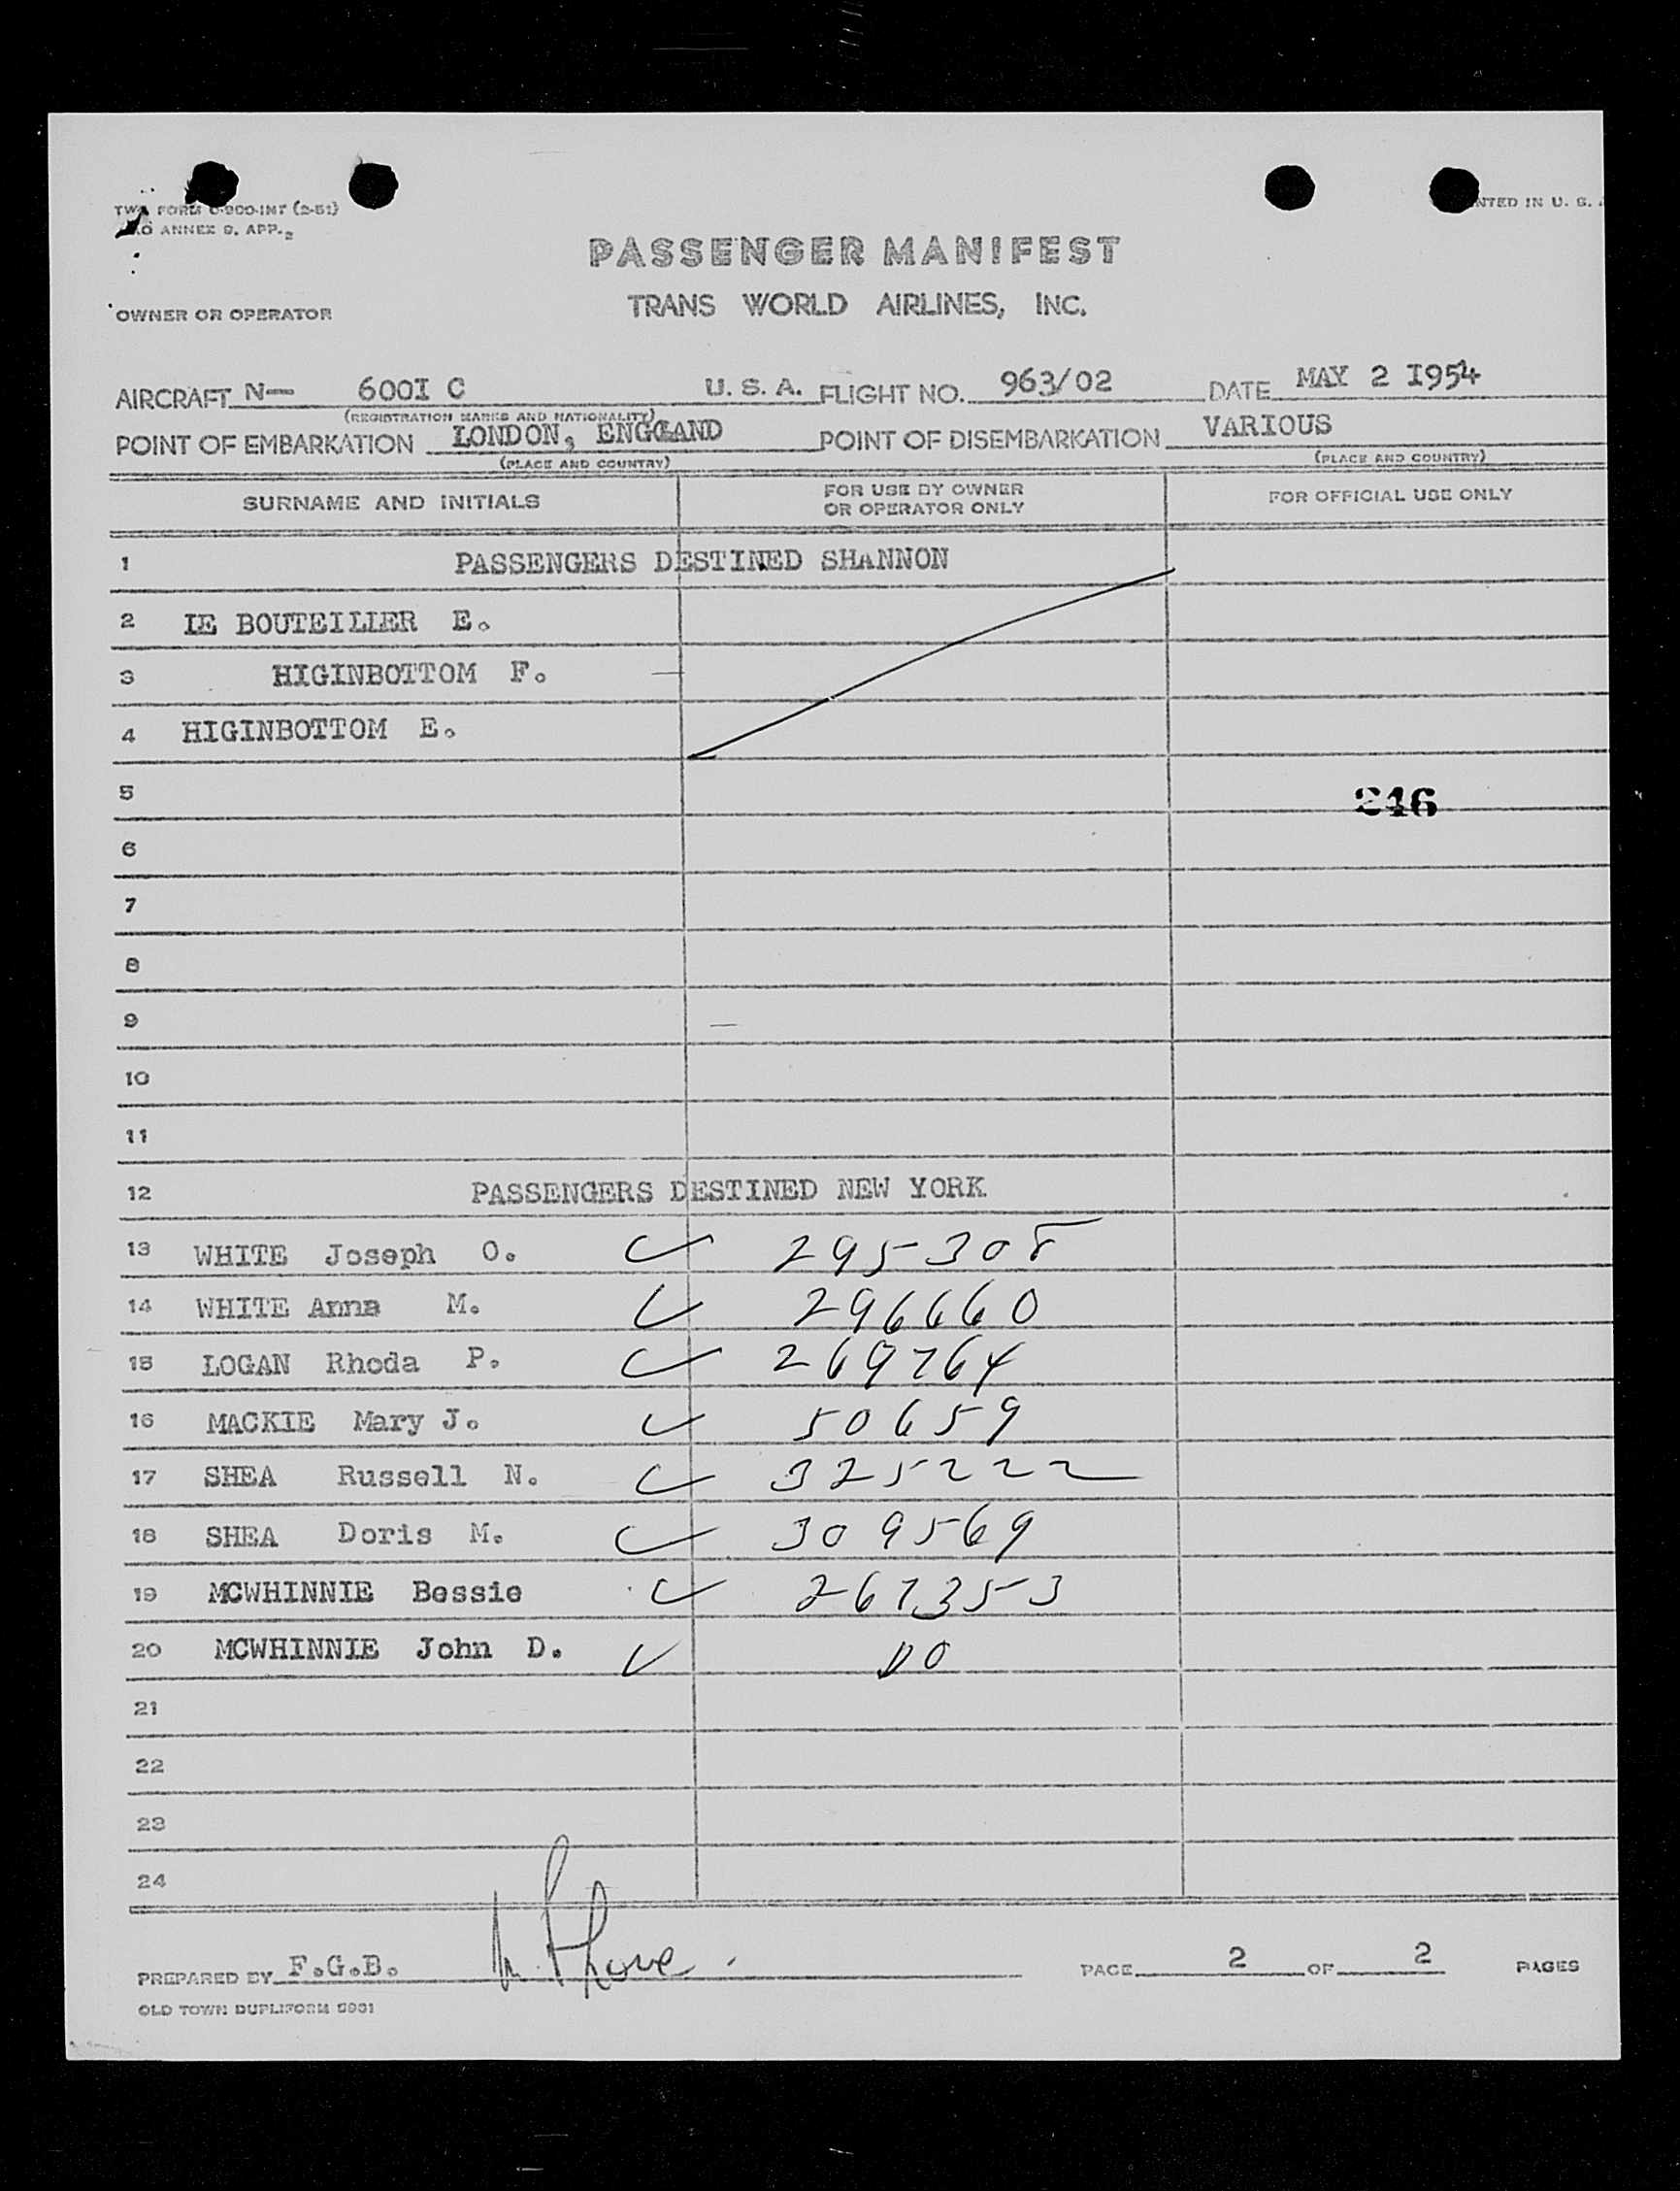 TWA FORM O-900-INT (2-51)
ANNEX 9, APP. 2
NTED IN U. S.
PASSENGER MANIFEST
OWNER OR OPERATOR
TRANS WORLD AIRLINES, INC.
AIRCRAFT N— 600I C U. S. A. FLIGHT NO. 963/02 DATE MAY 2 I954
(REGISTRATION MARKS AND NATIONALITY)
POINT OF EMBARKATION LONDON, ENGLAND POINT OF DISEMBARKATION VARIOUS
(PLACE AND COUNTRY) (PLACE AND COUNTRY)
SURNAME AND INITIALS FOR USE BY OWNER OR OPERATOR ONLY FOR OFFICIAL USE ONLY
1 PASSENGERS DESTINED SHANNON
2 LE BOUTEILLER E.
3 HIGINBOTTOM F.
4 HIGINBOTTOM E.
5 246
6
7
8
9
10
11
12 PASSENGERS DESTINED NEW YORK
13 WHITE Joseph O. ✓ 295308
14 WHITE Anna M. ✓ 296660
15 LOGAN Rhoda P. ✓ 269764
16 MACKIE Mary J. ✓ 50659
17 SHEA Russell N. ✓ 325222
18 SHEA Doris M. ✓ 309569
19 MCWHINNIE Bessie ✓ 267353
20 MCWHINNIE John D. ✓ DO
21
22
23
24
PREPARED BY F.G.B. PAGE 2 OF 2 PAGES
OLD TOWN DUPLIFORM 5931